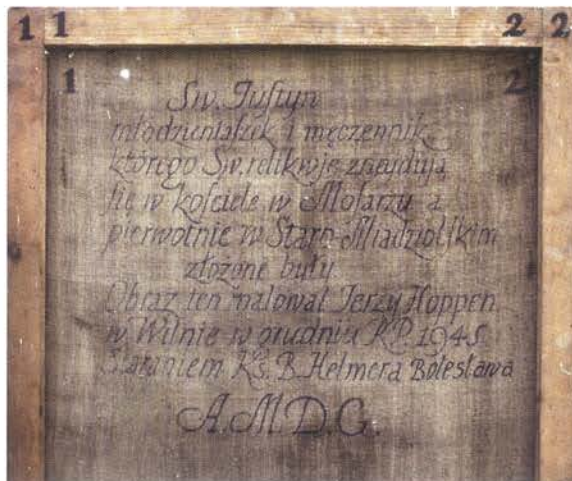 1 1 2 2
1 2
Św. Justyn
młodzieniaszek i męczennik
którego Św. relikwje znajdują
się w kościele w Mosarzu a
pierwotnie w Staro-Miadziolskim
złożone były.
Obraz ten malował Jerzy Hoppen
w Wilnie w grudniu R.P. 1945
Staraniem Ks. B. Helmera Bolesława
A.M.D.G.